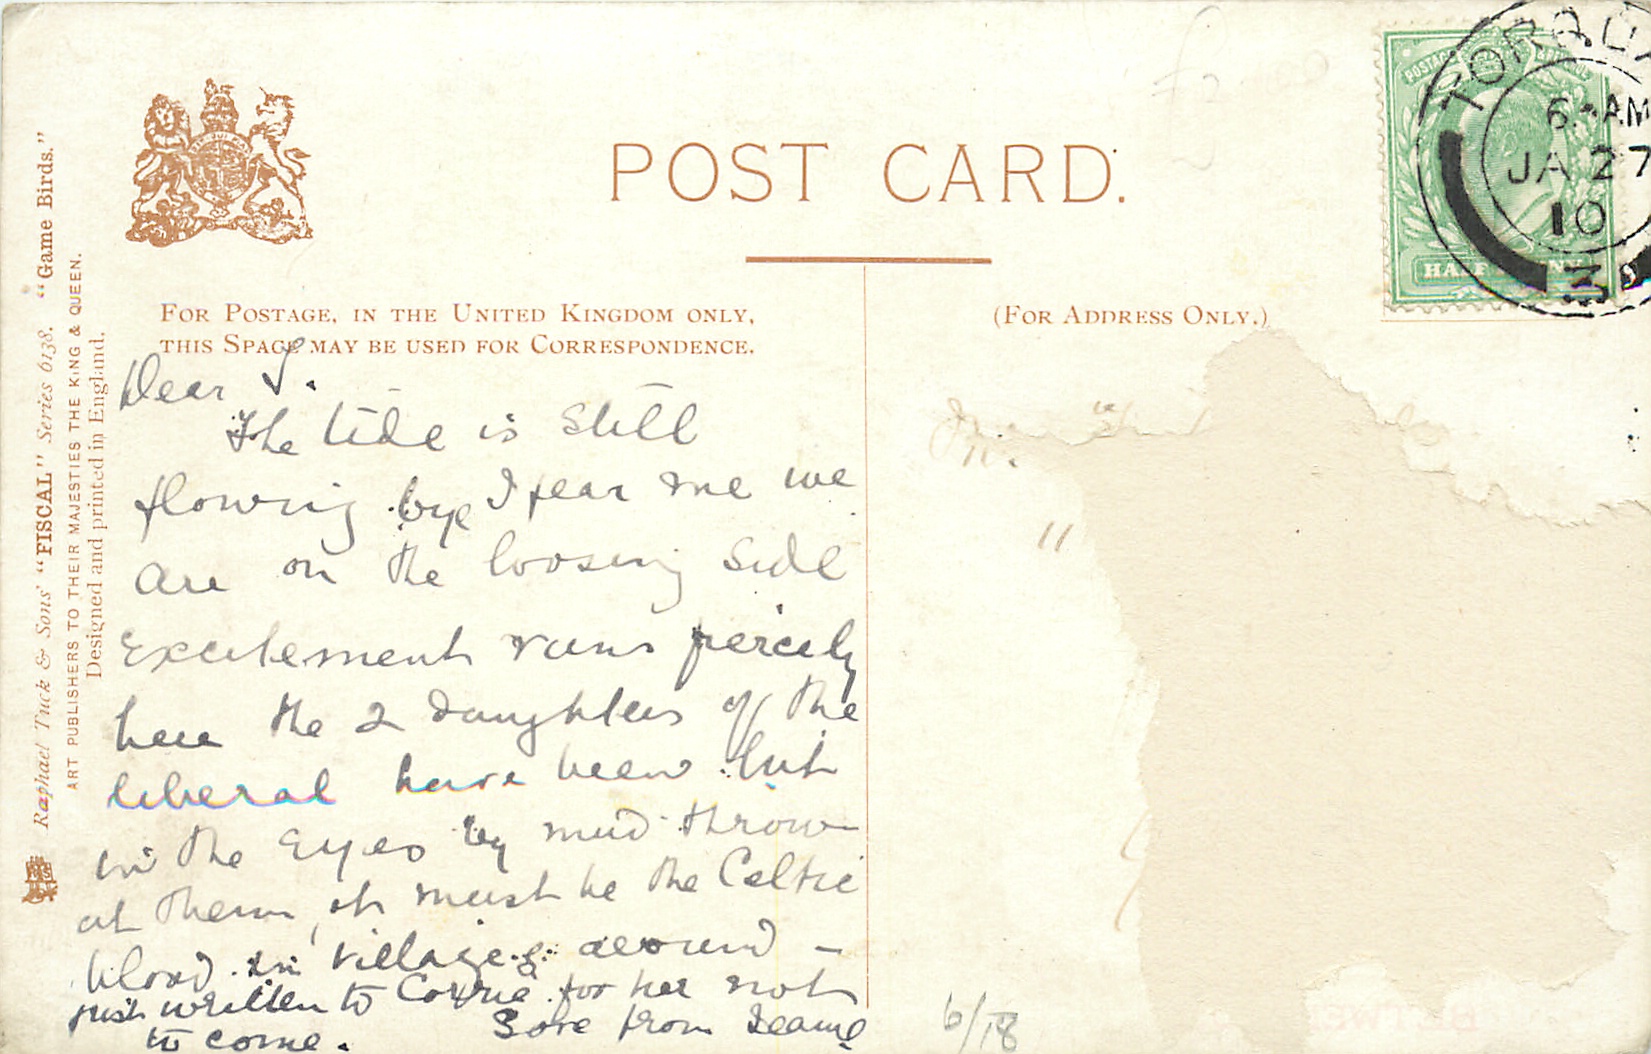 POST CARD.
FOR POSTAGE, IN THE UNITED KINGDOM ONLY,
THIS SPACE MAY BE USED FOR CORRESPONDENCE.
(FOR ADDRESS ONLY.)
Raphael Tuck & Sons' "FISCAL" Series 6138. "Game Birds."
ART PUBLISHERS TO THEIR MAJESTIES THE KING & QUEEN.
Designed and printed in England.
TORQUA
6 AM
JA 27
10
39
HALFPENNY
Dear J.
The tide is still
flowing bye I fear me we
are on the loosing side
Excitement runs fiercely
here the 2 daughters of the
liberal have been hit
in the Eyes by mud thrown
at them, it must be the Celtic
blood in villages around -
just written to Corrie for her not
to come.
Love from
"
6/18